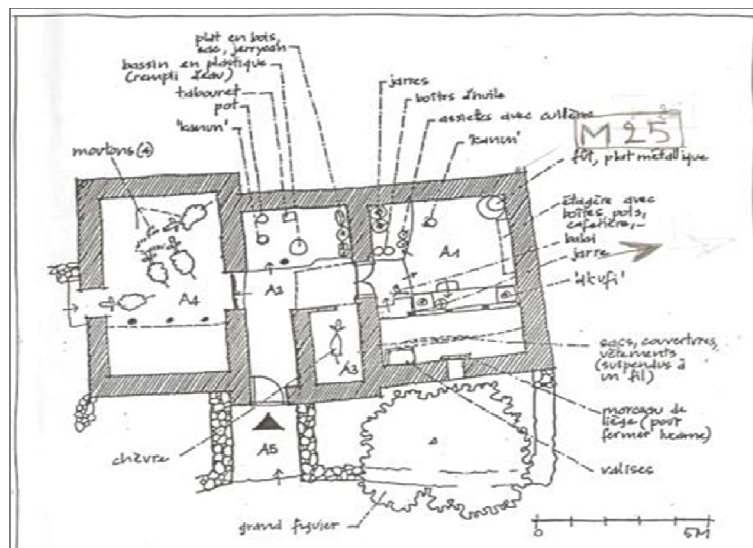 plat en bois,
sac, jerrycan
bassin en plastique
(rempli d'eau)
tabouret
pot
'kanun'
moutons (4)
jarres
boîtes d'huile
assiettes avec cuillère
'kanun'
M 25
fût, plat métallique
étagère avec
boîtes pots,
cafetière,..
jarre
'akufi'
A1
A2
A3
A4
A5
sacs, couvertures,
vêtements
(suspendus à
un fil)
morceau de
liège (pour
fermer lucarne)
valises
chèvre
grand figuier
0
5M